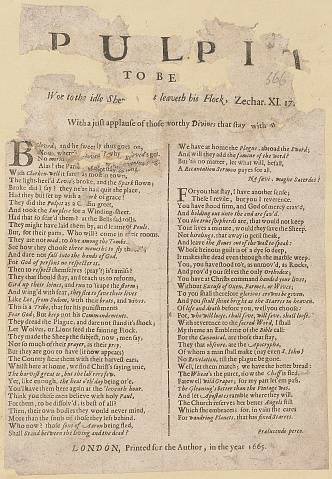 PULPIT
TO BE
Woe to the idle She t leaveth his Flock, Zechar. XI. 17.
With a just applause of those worthy Divines that stay with
Beloved, and he sweetly thus goes on,
Now, where
Alas! the Paul
With Clarken-well it fares as most towns,
The light-heel'd Levits broke, and the Spark flown;
Broke did I say? they ne're had quit the place,
Had they but set up with a of grace!
They did the Pulpit as a Coffin greet,
And took the Surplice for a Winding-sheet.
Had that so fear'd them? as the Bells sad toll,
They might have had them by, and learn'd of Pauls,
But, for their parts, Who will come if in tone rooms,
They are not mad, to live among the Tombs.
See how they choose three moneths to fly the
And dare not fall into the hands of God.
For God of persons no respecter is,
Then to respect themselves (pray't) is't amiss?
They that should stay, and teach us to reforme,
Gird up their loines, and run to 'scape the storm;
And wing'd with fear, they flee to save their lives
Like Lot, from Sodom, with their brats, and wives.
This is a Trade, that for his punishments
Fear God, But keep not his Commandements.
They dread the Plague, and dare not stand it's shock;
Let Wolves, or Lions feed the fainting Flock.
They made the Sheep the subject, now, mens say,
Nor is much of their prayer, as their prey,
But they are gon to have (it now appear)
The Country shear them with their harvest ears.
Whilst here at home, we find Christ's saying true,
The harvest great is, but the reapers few.
Yet, like enough, the heat o'th'day being o're,
You'l have them here again at the 'leventh hour.
Think you these men believe with holy Paul,
For them, to be dissolv'd, is best of all?
Then, their own bodies they would never mind,
More than the souls of those they left behind.
Who now? these sons of Aaron being fled,
Shall stand between the living and the dead?
We have at home the Plague, abroad the Sword;
And will they add the famine of the word?
But 'tis no matter, let what will, befall,
A Recantation-Sermon payes for all.
Nefasti: magne Sacerdos?
For you that stay, I have another sense;
Theirs I revile, but you I reverence.
You have stood firm, and God of mercy crav'd,
And holding out unto the end are sav'd.
You are true Shepherds are, that would not keep
Your lives a minute, would they save the Sheep.
Not hirelings, that away in post do fly,
And leave the stones out of the Wall to speak:
Whose heinous guilt is of a dye so deep,
It makes the dead even through the marble weep.
You, you, have stood to't, as unmov'd, as Rocks,
And prov'd your selves the only Orthodox;
You have at Christs command hooded your lives,
Without Excuse of Oxen, Farmes, or Wives;
To you shall therefore glorious crowns be given,
And you shall shine bright as the Starres in heaven.
Of life and death before you, well you choose:
For, who will keep, shall lose, will lose, shall keep.
With reverence to the sacred Word, I shall
My theame an Embleme of the Bible call.
For the Canonical, are those that stay,
They that rid away, are the Apocrypha.
Of whom a man shall make (nay even I. John)
No Revelation, till the plague be gone.
Well, let them march; we have the better bread:
The Wheat's the purer, now the Chaff's is fled.
Farewell wild Grapes; for my part let em pass,
The Gleaning's better than the Vintage was.
And let Apostates ramble where they will,
The Church reserves her better Angels still
Which she embraceth: for in vain she cares
For wandring Planets, that has fixed Starres.
Praelucendo pereo.
LONDON, Printed for the Author, in the year 1665.